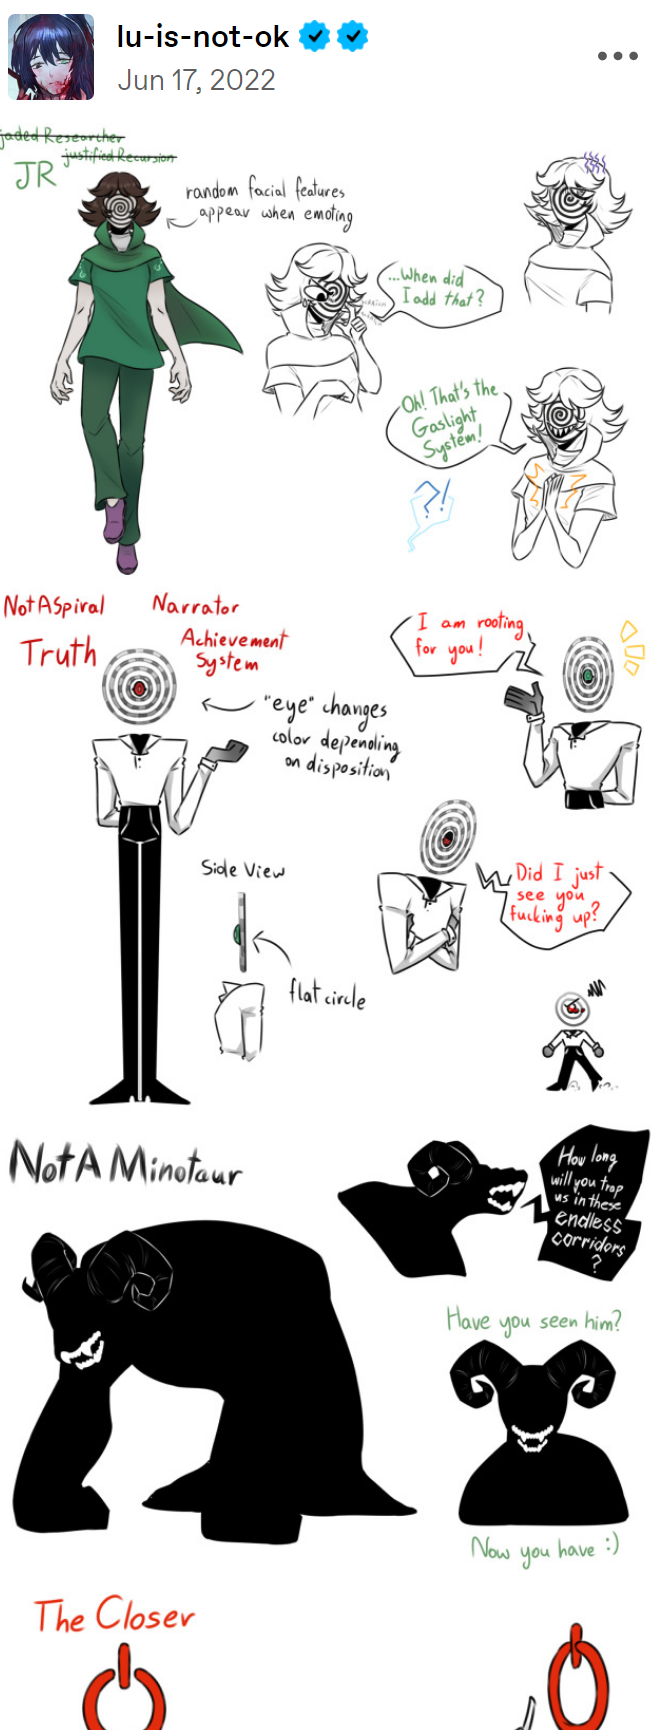 lu-is-not-ok
Jun 17, 2022
jaded Researcher
justified Recursion
JR
random facial features
appear when emoting
...When did
I add that?
Oh! That's the
Gaslight
System!
?!
NotASpiral
Narrator
Truth
Achievement
System
"eye" changes
color depending
on disposition
I am rooting
for you!
Side View
flat circle
Did I just
see you
fucking up?
NotAMinotaur
How long
will you trap
us in these
endless
corridors
?
Have you seen him?
Now you have :)
The Closer